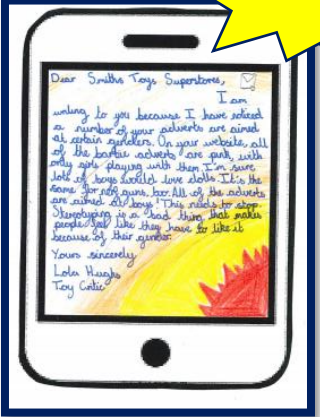 Dear Smiths Toys Superstores,
I am
writing to you because I have noticed
a number of your adverts are aimed
at certain genders. On your website, all
of the barbie adverts are pink, with
only girls playing with them. I'm sure
lots of boys would love dolls. It's the
same for nerf guns, too. All of the adverts
are aimed at boys! This needs to stop.
Stereotyping is a bad thing that makes
people feel like they have to like it
because of their gender.
Yours sincerely
Lola Hughs
Toy Critic